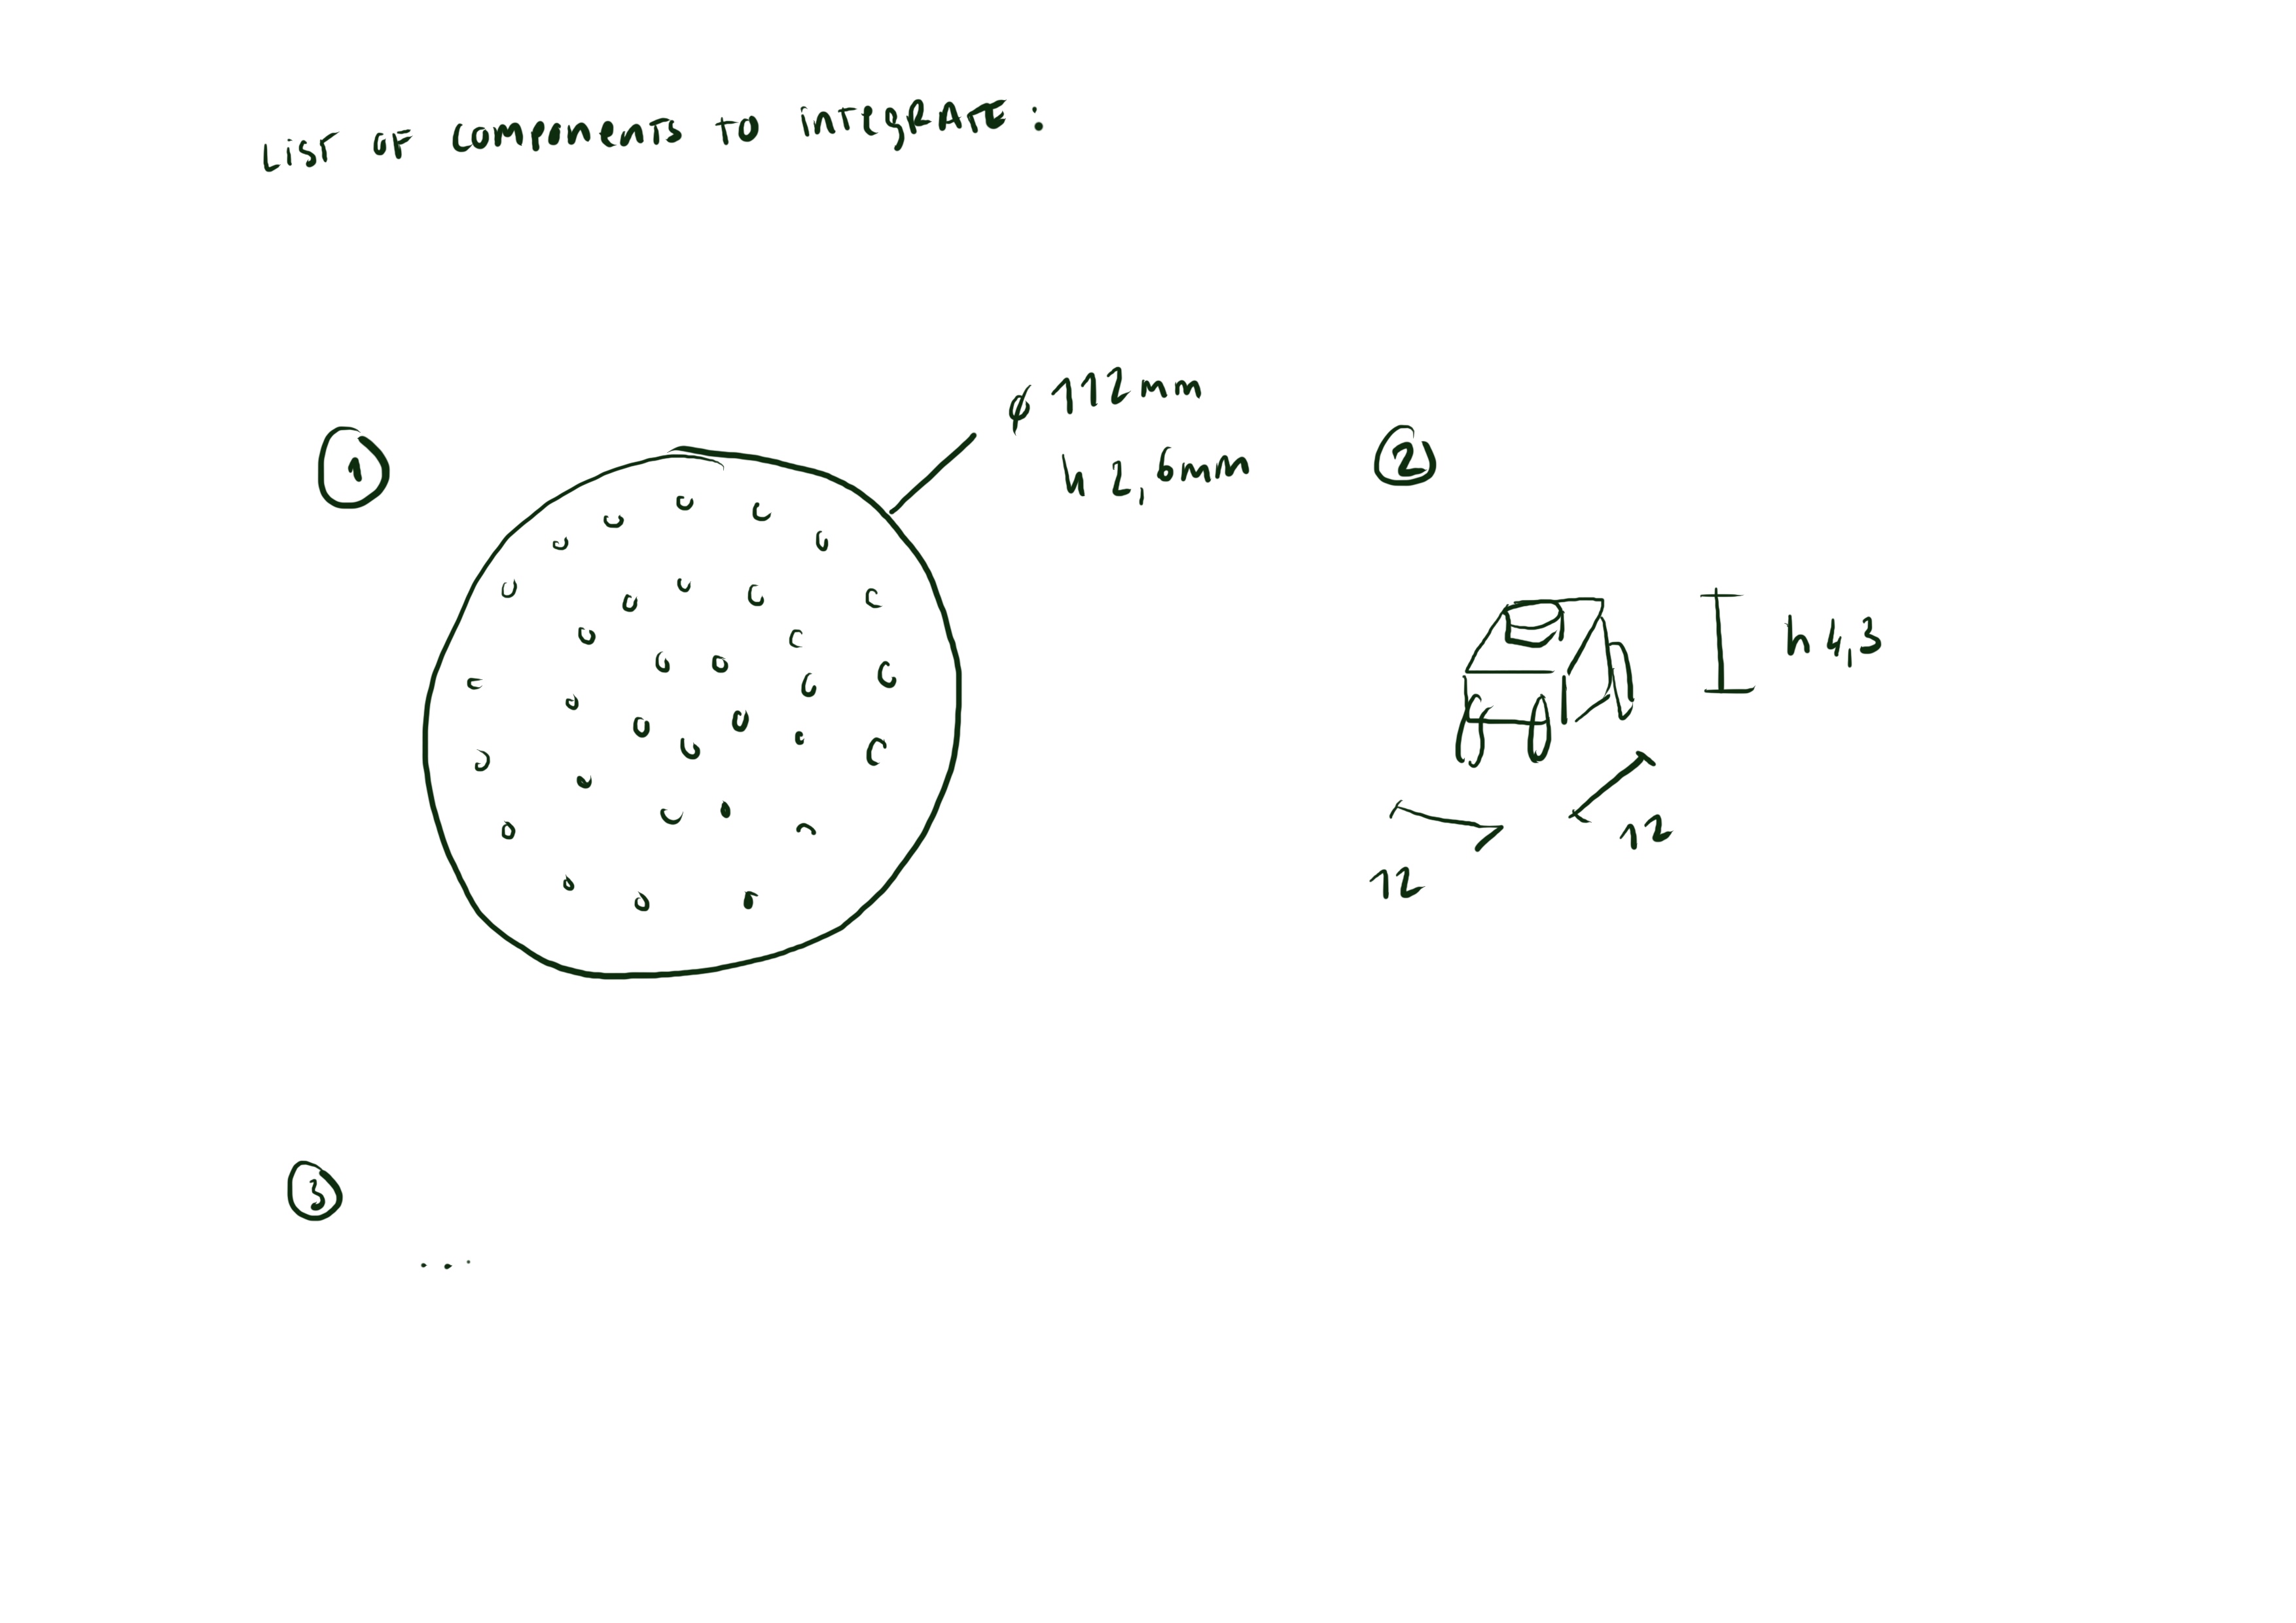 LIST OF COMPONENTS TO INTEGRATE:
1
ϕ 112mm
h 2,6mm
2
h 4,3
12
12
3
...